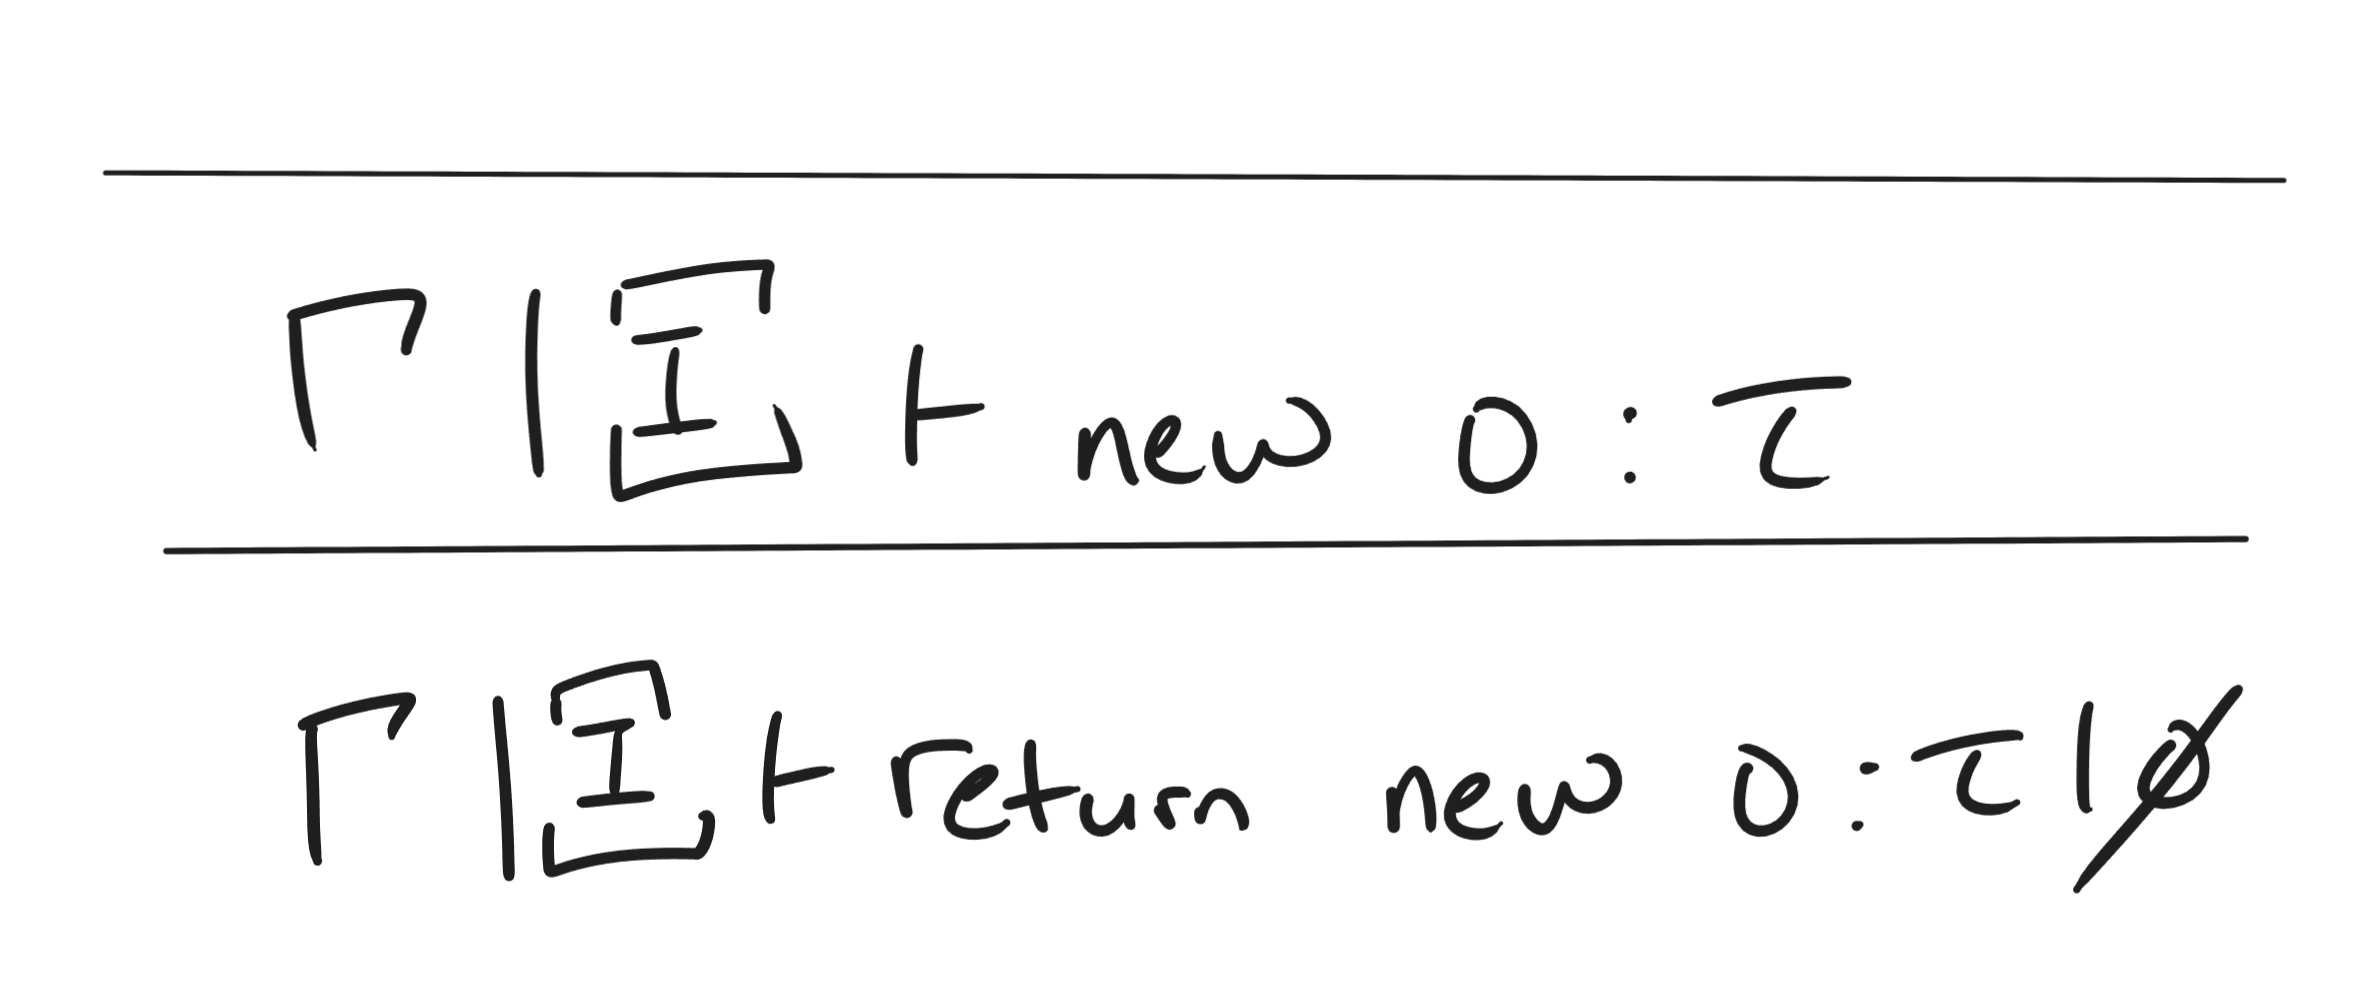 Γ | Ξ ⊢ new O : τ
Γ | Ξ ⊢ return new O : τ | ∅